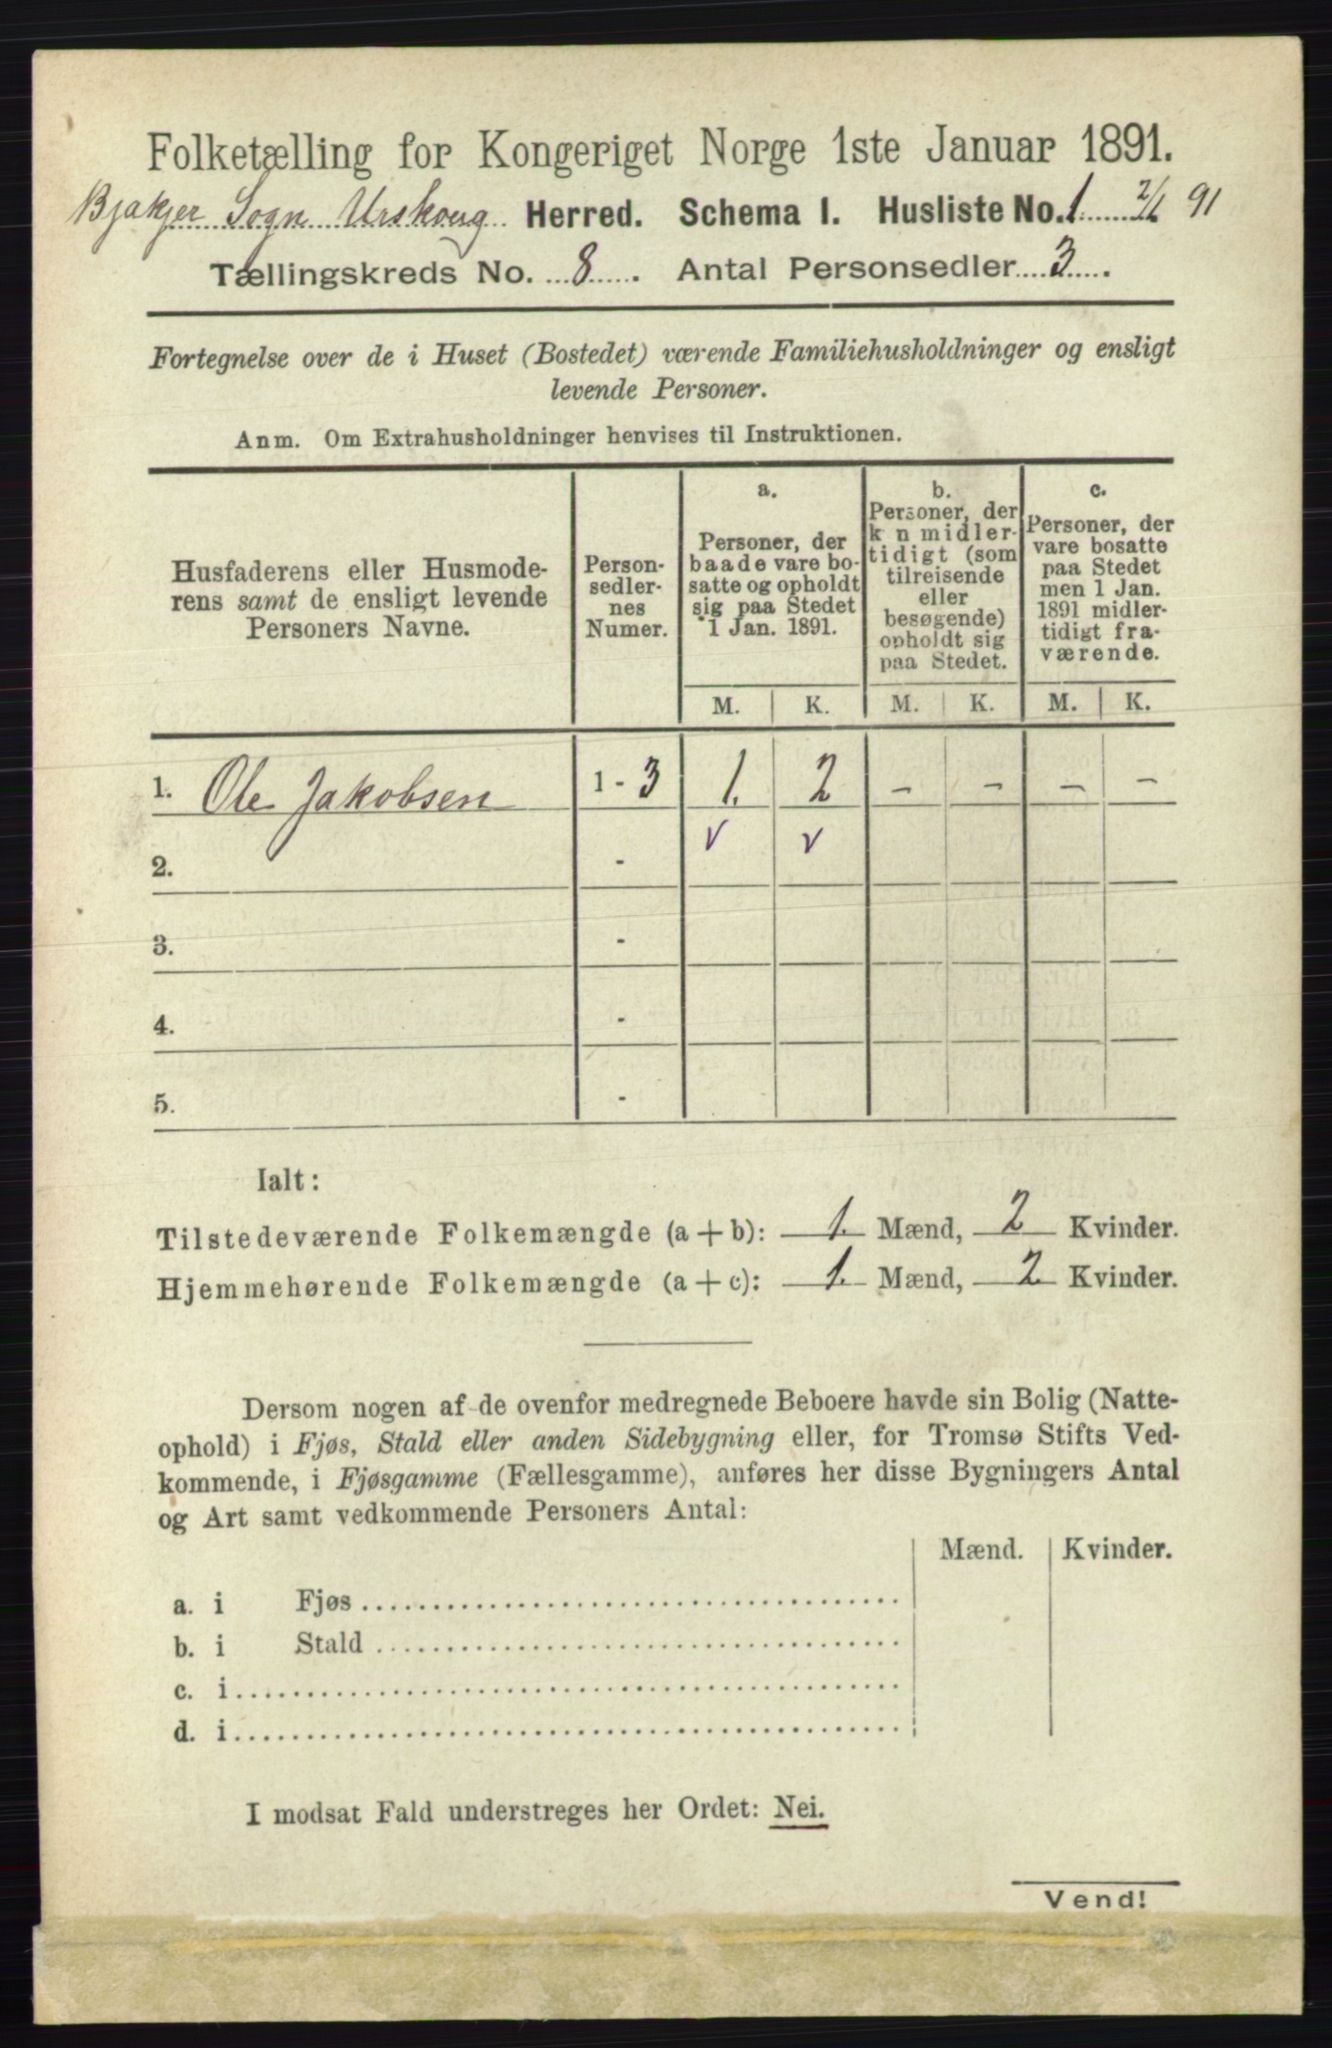 Folketælling for Kongeriget Norge 1ste Januar 1891.
Bjakjer Sogn Urskoug Herred. Schema I. Husliste No. 1 2/1 91
Tællingskreds No. 8. Antal Personsedler 3.
Fortegnelse over de i Huset (Bostedet) værende Familiehusholdninger og ensligt
levende Personer.
Anm. Om Extrahusholdninger henvises til Instruktionen.
Husfaderens eller Husmode-
rens samt de ensligt levende
Personers Navne.
Person-
sedler-
nes
Numer.
a.
Personer, der
baade vare bo-
satte og opholdt
sig paa Stedet
1 Jan. 1891.
b.
Personer, der
k n midler-
tidigt (som
tilreisende
eller
besøgende)
opholdt sig
paa Stedet.
c.
Personer, der
vare bosatte
paa Stedet
men 1 Jan.
1891 midler-
tidigt fra-
værende.
M. K. M. K. M. K.
1. Ole Jakobsen 1 - 3 1. 2 - - - -
v v
2. -
3. -
4. -
5. -
Ialt:
Tilstedeværende Folkemængde (a + b): 1. Mænd, 2 Kvinder.
Hjemmehørende Folkemængde (a + c): 1. Mænd, 2 Kvinder.
Dersom nogen af de ovenfor medregnede Beboere havde sin Bolig (Natte-
ophold) i Fjøs, Stald eller anden Sidebygning eller, for Tromsø Stifts Ved-
kommende, i Fjøsgamme (Fællesgamme), anføres her disse Bygningers Antal
og Art samt vedkommende Personers Antal:
Mænd. Kvinder.
a. i Fjøs
b. i Stald
c. i
d. i
I modsat Fald understreges her Ordet: Nei.
Vend!